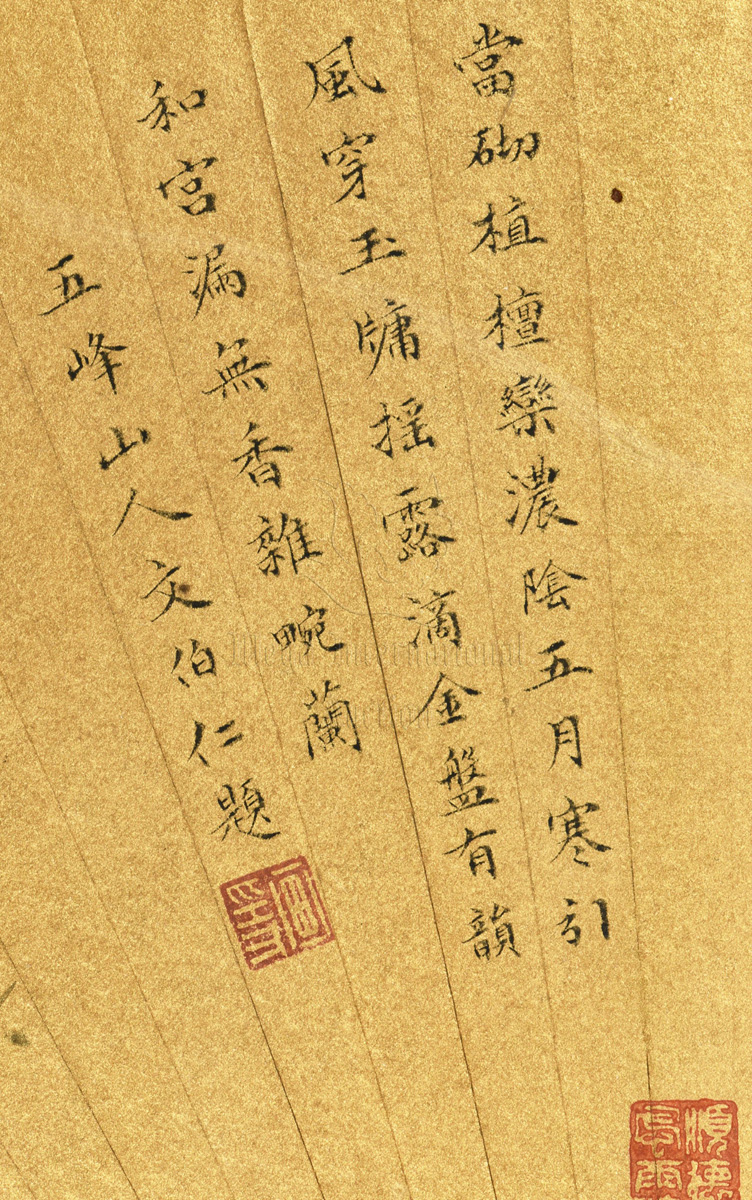 當砌植檀欒濃陰五月寒引
風穿玉牗摇露滴金盤有韻
和宮漏無香雜畹蘭
五峰山人文伯仁題